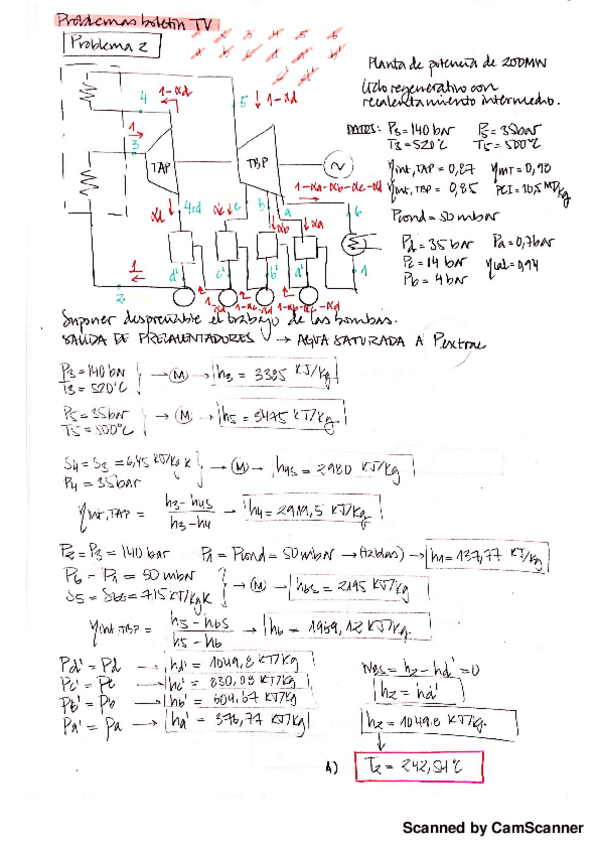 Problemas boletín TV
Problema 2
Planta de potencia de 200MW
Ciclo regenerativo con
recalentamiento intermedio.
DATOS: P3=140bar P5=35bar
T3=520°C T5=500°C
ηint,TAP=0,87 ηMT=0,98
ηint,TBP=0,85 PCI=10,5 MJ/kg
Pcond=50mbar
Pd=35bar Pa=0,7bar
Pc=14bar ηcal=0,94
Pb=4bar
1-αd
4
5 ↓ 1-αd
1
3
TAP
TBP
1-αa-αb-αc-αd
αd 4≡d αc c b a 6
αb αa
d' c' b' a' 1
1
2 1-αd 1-αc-αd 1-αb-αc-αd
Suponer despreciable el trabajo de las bombas.
SALIDA DE PRECALENTADORES → AGUA SATURADA A Pextrac
P3=140bar
T3=520°C → M → h3=3385 KJ/kg
P5=35bar
T5=500°C → M → h5=3475 KJ/kg
S4=S3=6,45 KJ/kg K
P4=35bar → M → h4s=2980 KJ/kg
ηint,TAP = h3-h4s / h3-h4 → h4=2919,5 KJ/kg
P2=P3=140bar P1=Pcond=50mbar →(tablas)→ h1=137,77 KJ/kg
P6-P1=50mbar
S5=S6s=7,15 KJ/kgK → M → h6s=2195 KJ/kg
ηint,TBP = h5-h6s / h5-h6 → h6=1959,12 KJ/kg.
Pd'=Pd → hd'=1049,8 KJ/kg
Pc'=Pc → hc'=830,08 KJ/kg
Pb'=Pb → hb'=604,67 KJ/kg
Pa'=Pa → ha'=376,77 KJ/kg
WB5=h2-hd'=0
h2=hd'
h2=1049,8 KJ/kg.
A) T2=242,54°C
Scanned by CamScanner